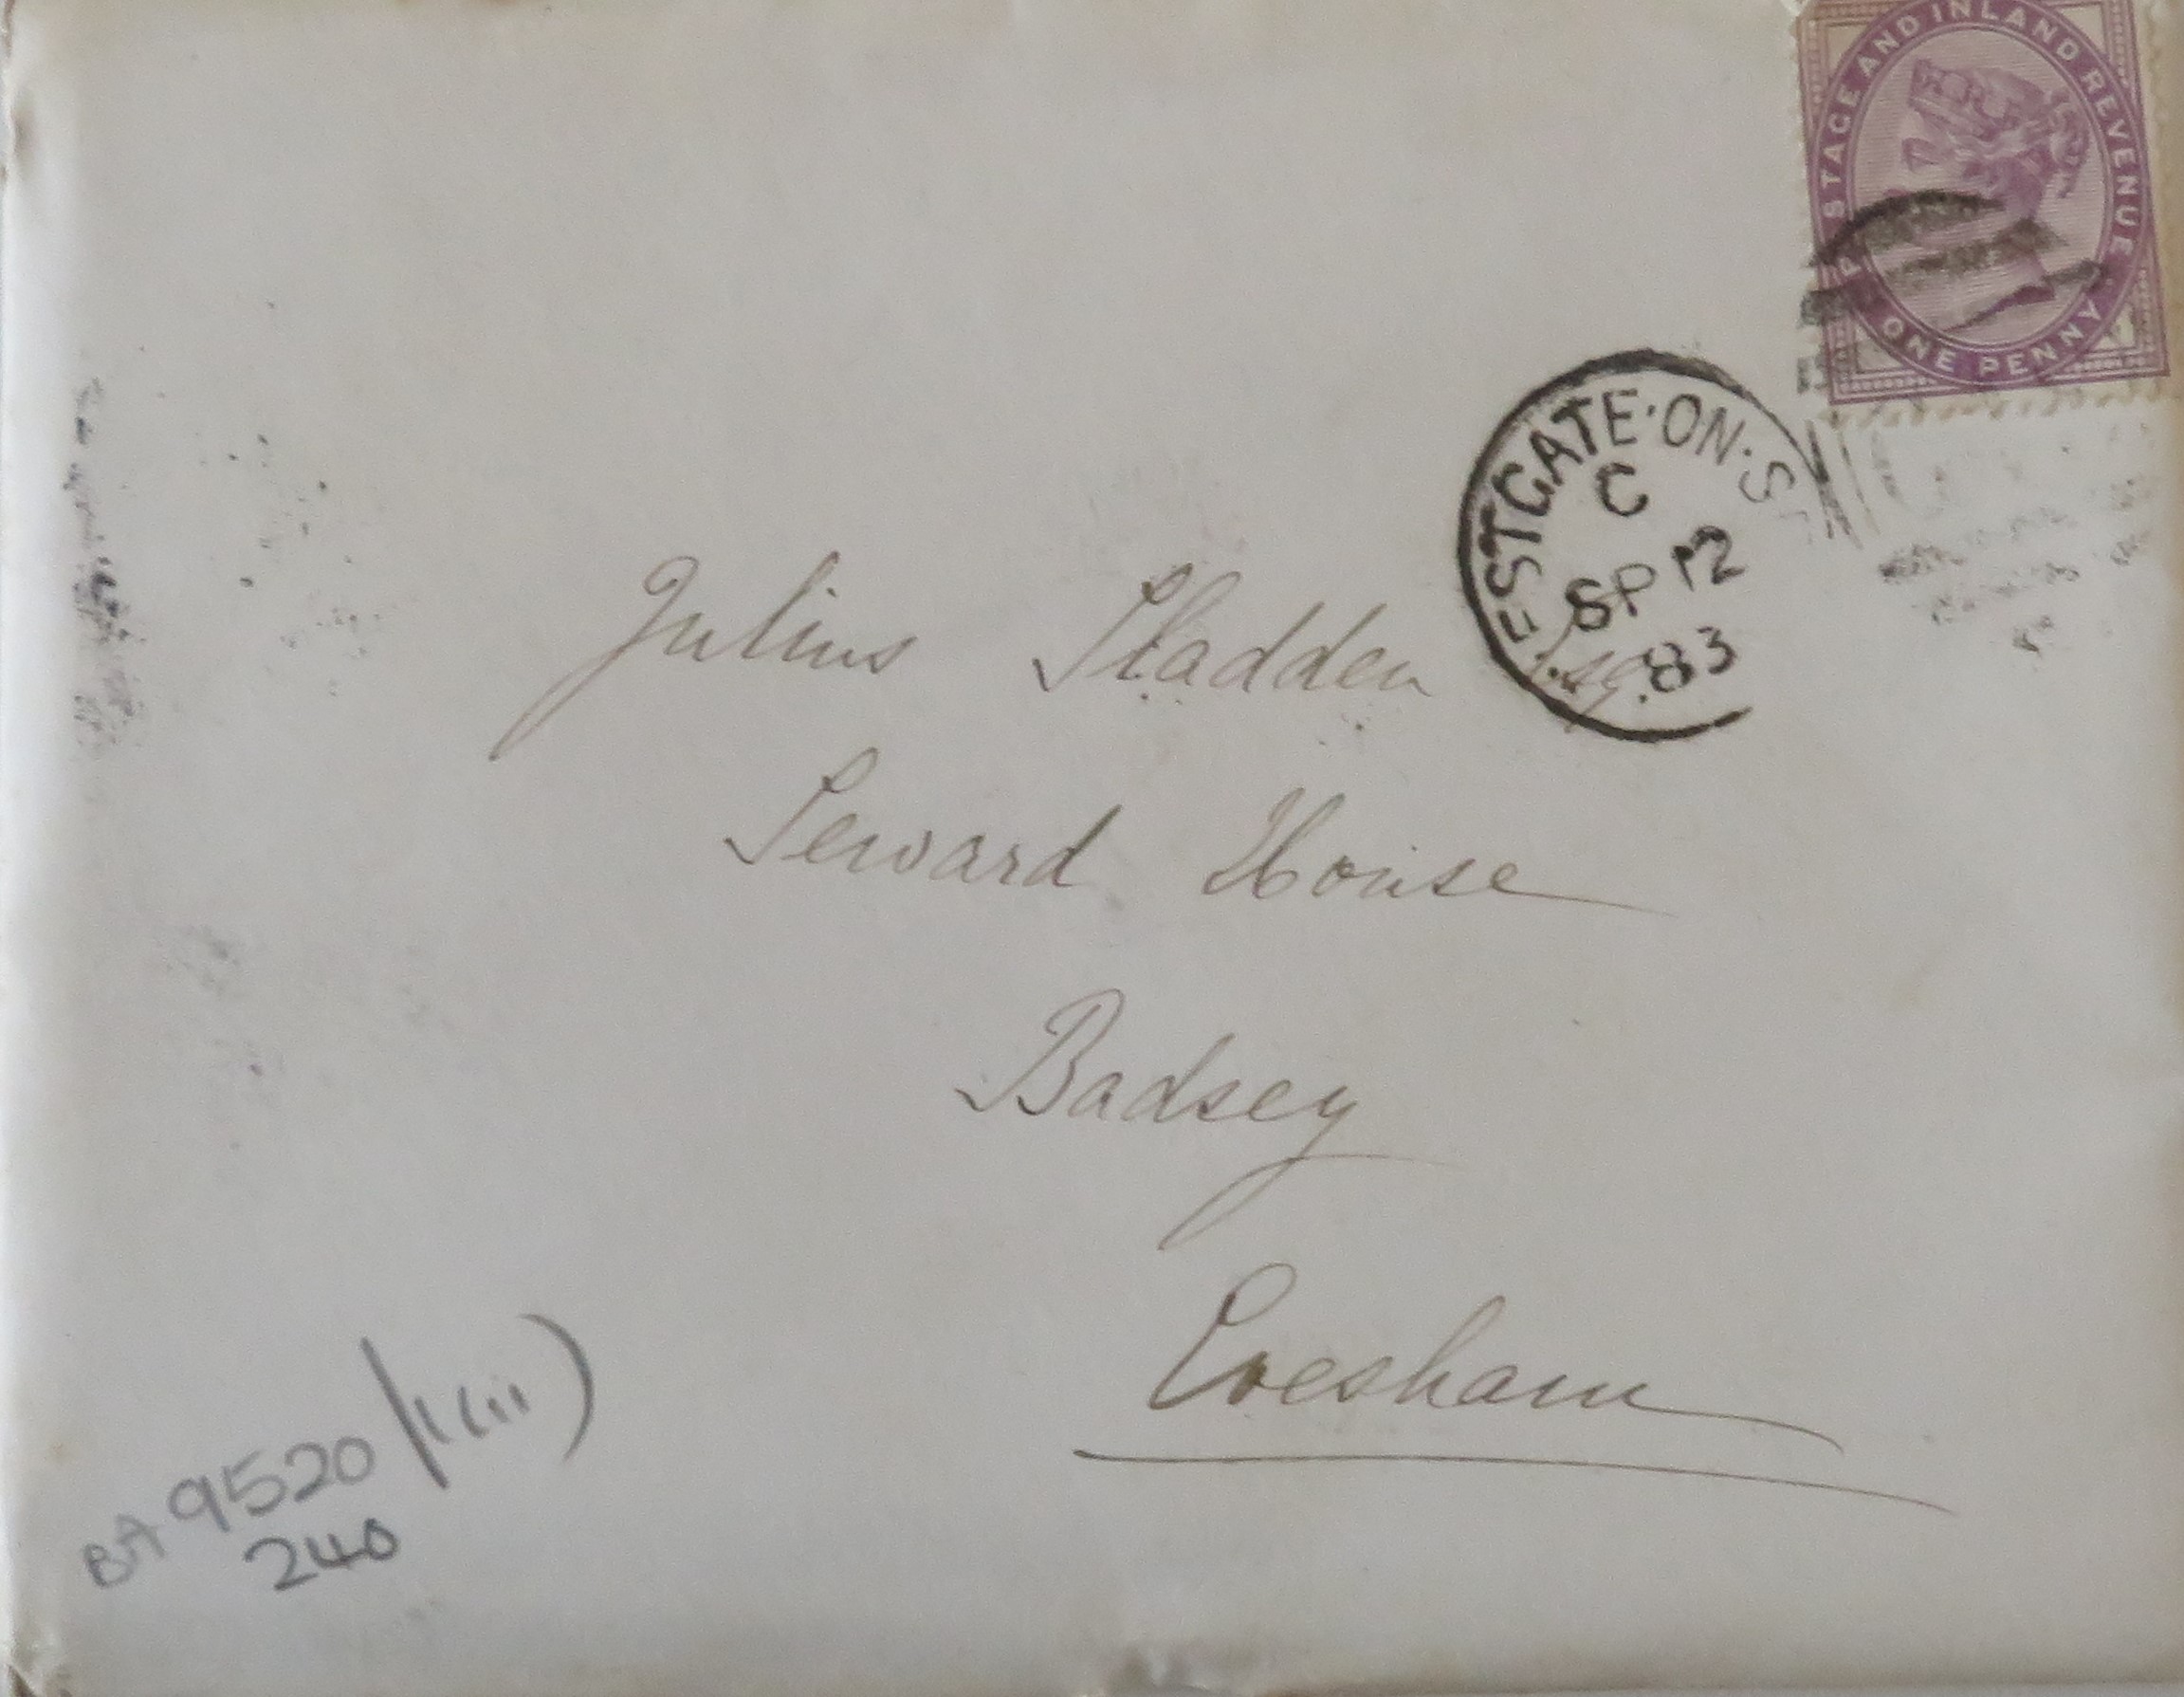 POSTAGE AND INLAND REVENUE
ONE PENNY
ESTGATE·ON·S
C
SP 12
83
Julius Sladden Esq.
Seward House
Badsey
Evesham
BA 9520/1(iii)
240